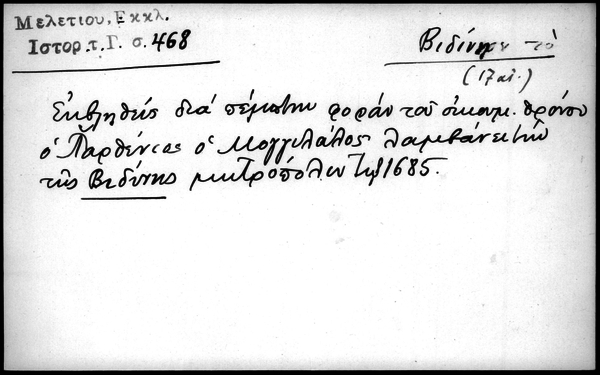 Μελετίου, Εκκλ.
Ιστορ. τ. Γ. σ. 468
Βιδύνην τὸ
(17 αἰ.)
Ἐκβληθεὶς διὰ πέμπτην φορὰν τοῦ οἰκουμ. θρόνου
ὁ Παρθένιος ὁ Μογγιλάλος λαμβάνει τὴν
τῆς Βιδύνης μητρόπολιν τῷ 1685.